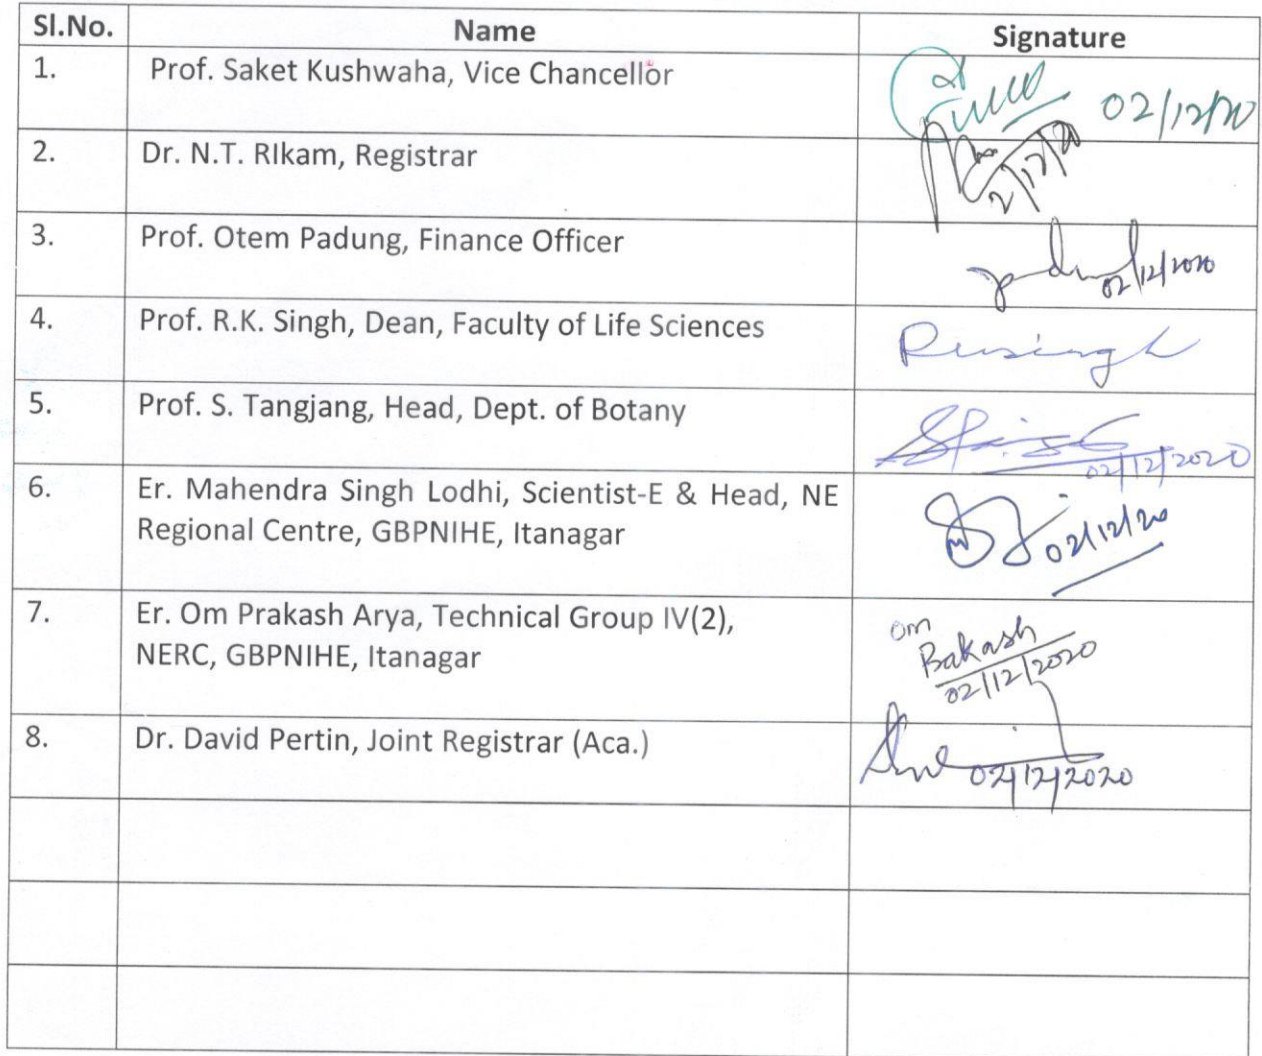 Sl.No. Name Signature
1. Prof. Saket Kushwaha, Vice Chancellor 02/12/20
2. Dr. N.T. RIkam, Registrar 2/12/20
3. Prof. Otem Padung, Finance Officer 02/12/2020
4. Prof. R.K. Singh, Dean, Faculty of Life Sciences Rksingh
5. Prof. S. Tangjang, Head, Dept. of Botany 02/12/2020
6. Er. Mahendra Singh Lodhi, Scientist-E & Head, NE
Regional Centre, GBPNIHE, Itanagar 02/12/20
7. Er. Om Prakash Arya, Technical Group IV(2), Om
NERC, GBPNIHE, Itanagar Prakash
02/12/2020
8. Dr. David Pertin, Joint Registrar (Aca.) 02/12/2020